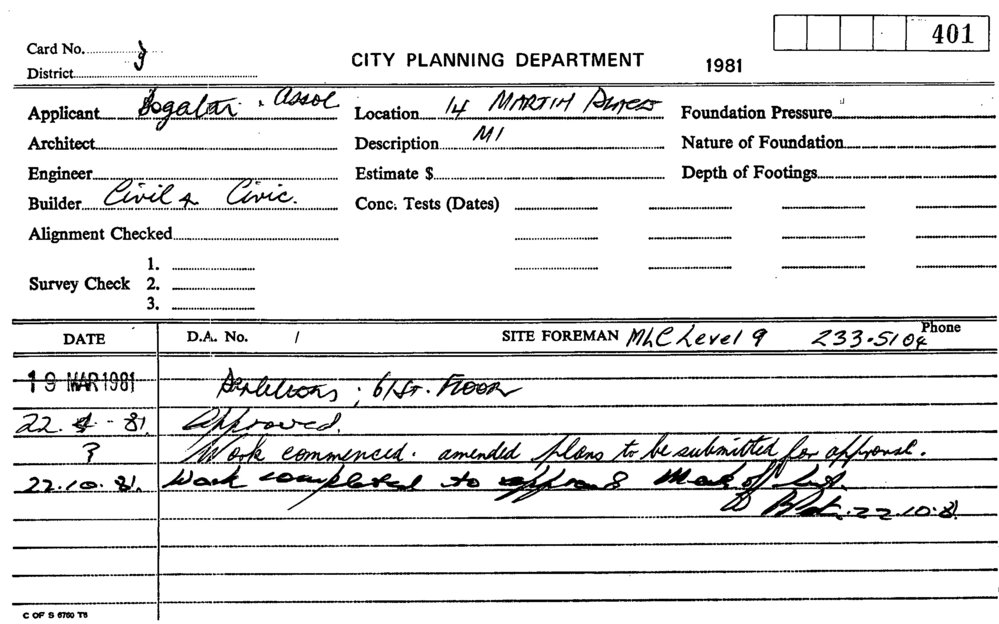 401
Card No.
CITY PLANNING DEPARTMENT 1981
District
Applicant Bogatar & Assoc Location 14 MARTIN PLACE Foundation Pressure
Architect Description M1 Nature of Foundation
Engineer Estimate $ Depth of Footings
Builder Civil & Civic. Conc. Tests (Dates)
Alignment Checked
1.
Survey Check 2.
3.
DATE D.A. No. / SITE FOREMAN MLC Level 9 233-5104 Phone
19 MAR 1981 Partitions; 61st. FLOOR
22. 4 - 81. Approved.
? Work commenced. amended plans to be submitted for approval.
22.10.81. Work completed to
22.10.81
C OF S 6760 TS